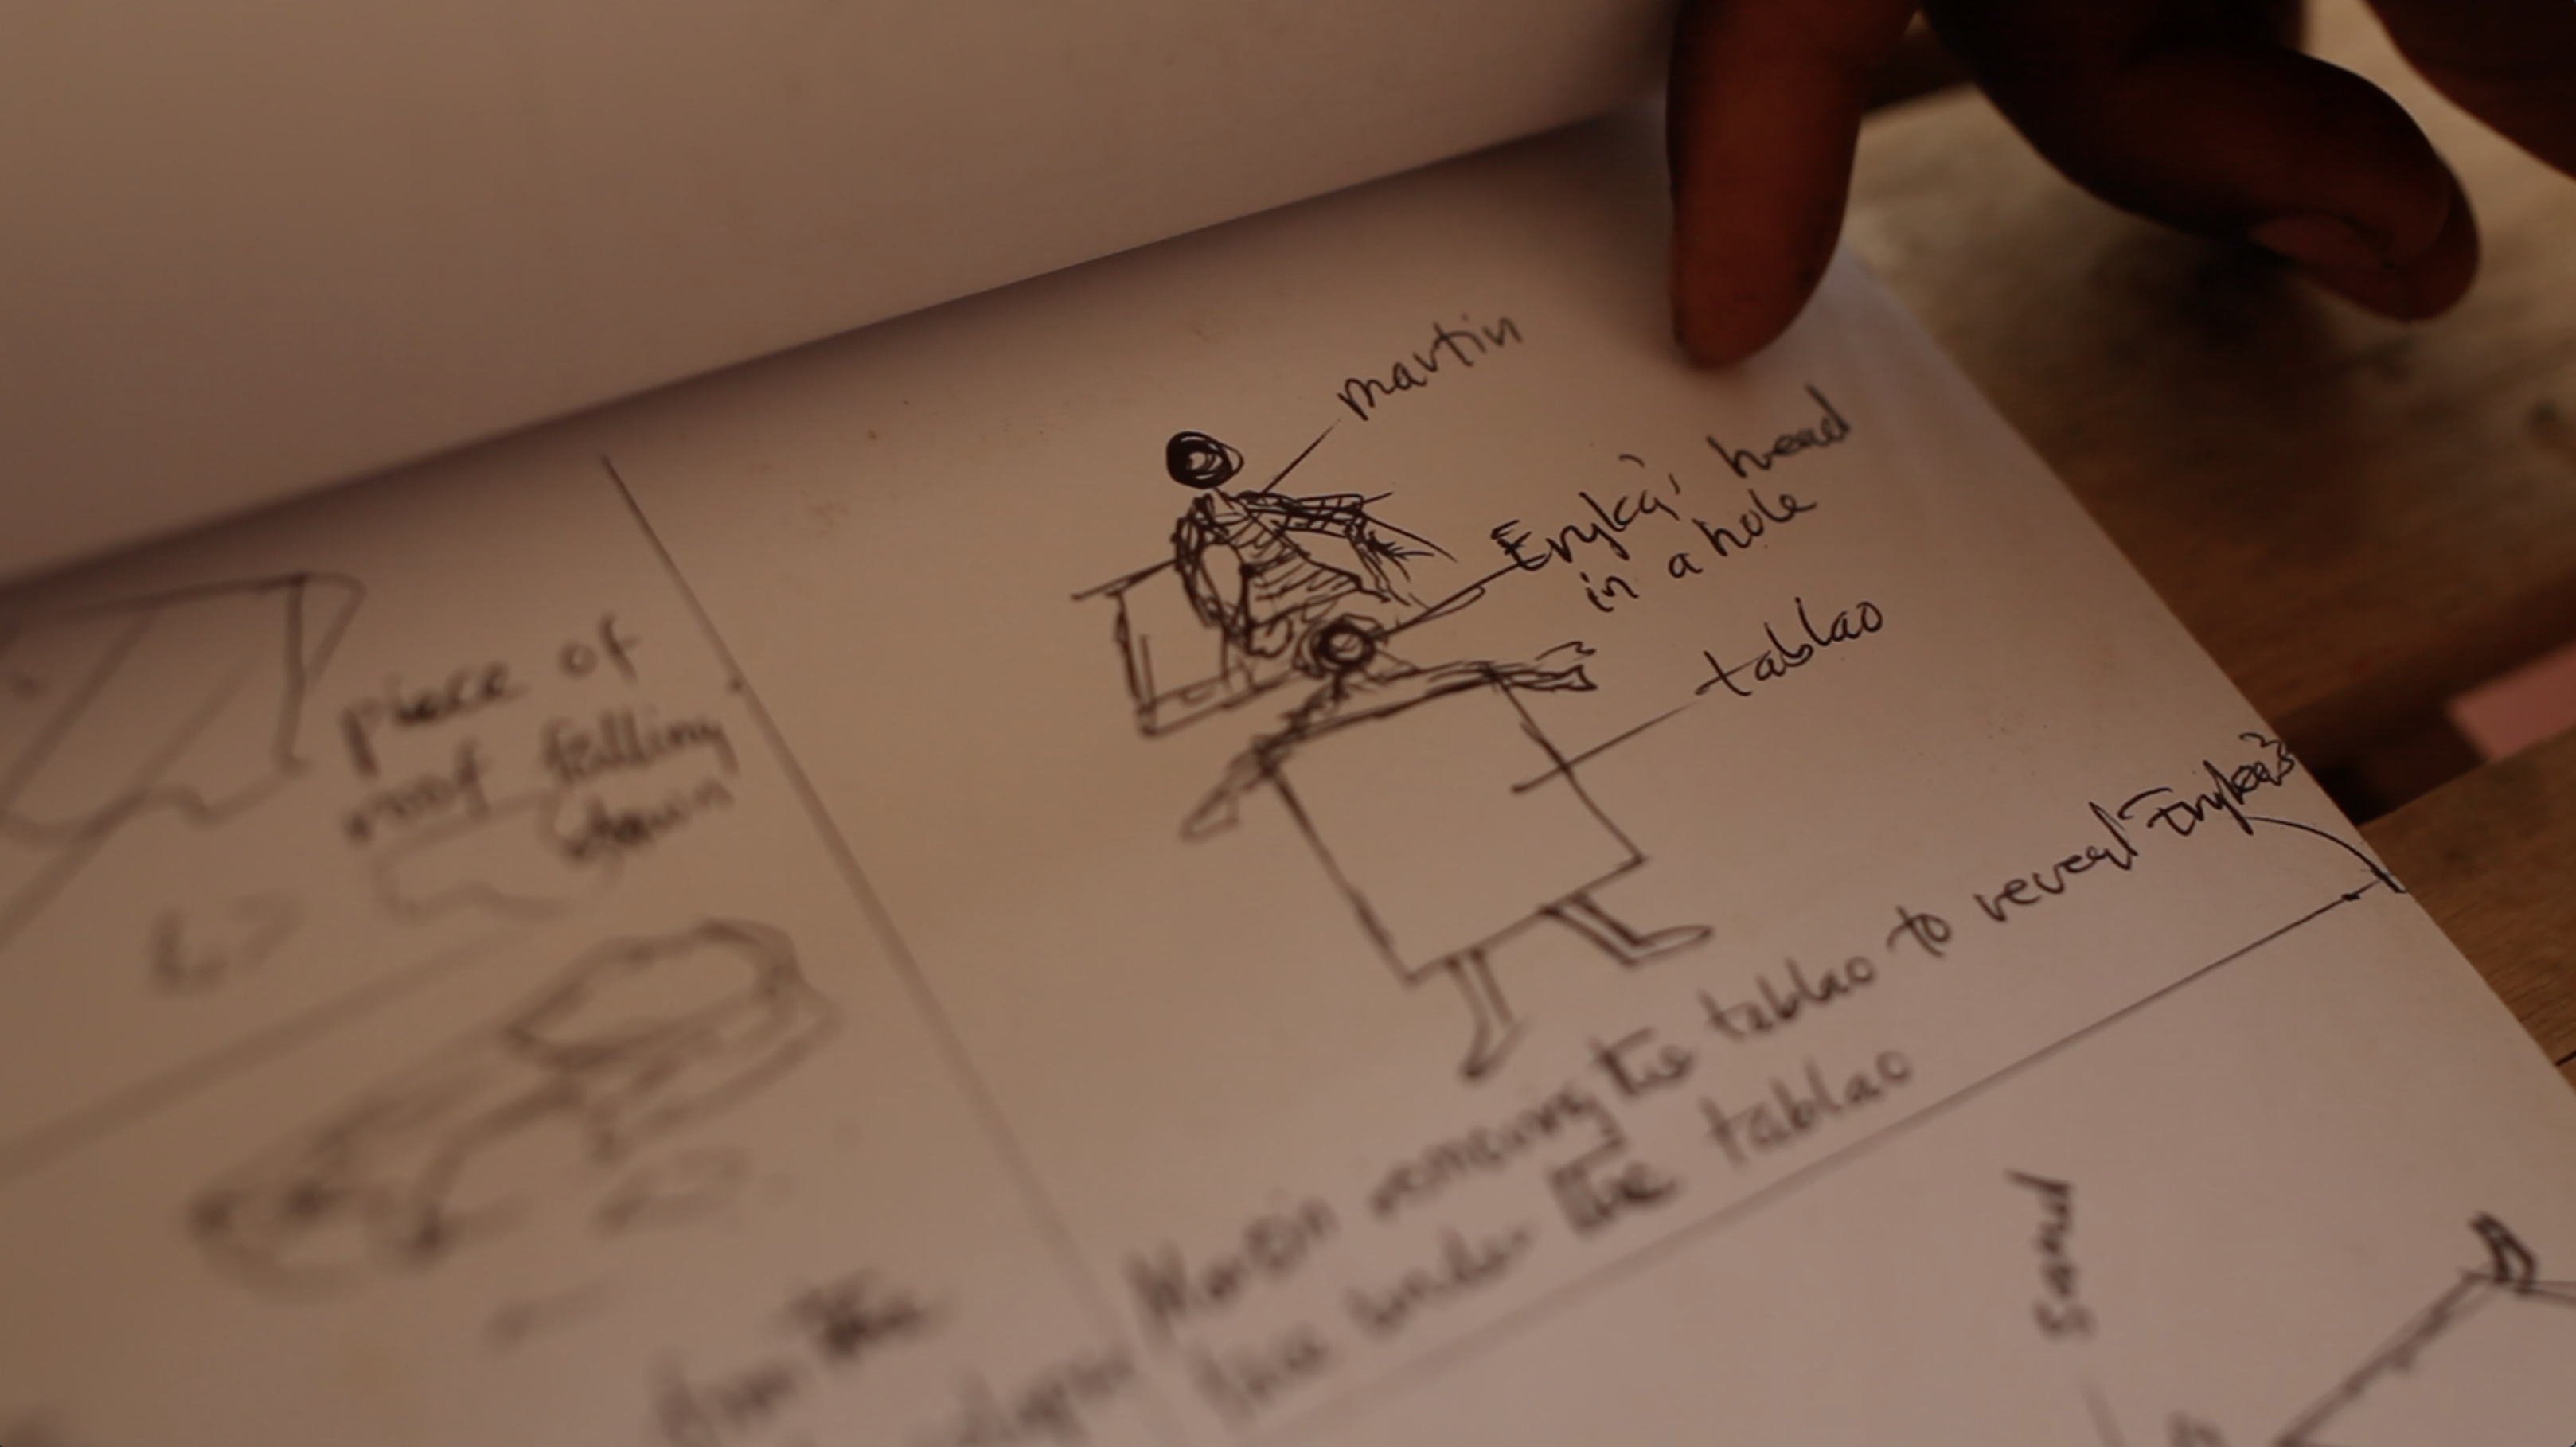 piece of
roof falling
down
martin
Eryka' head
in a hole
tablao
Martin removing the tablao to reveal Eryka's
under the tablao
sand